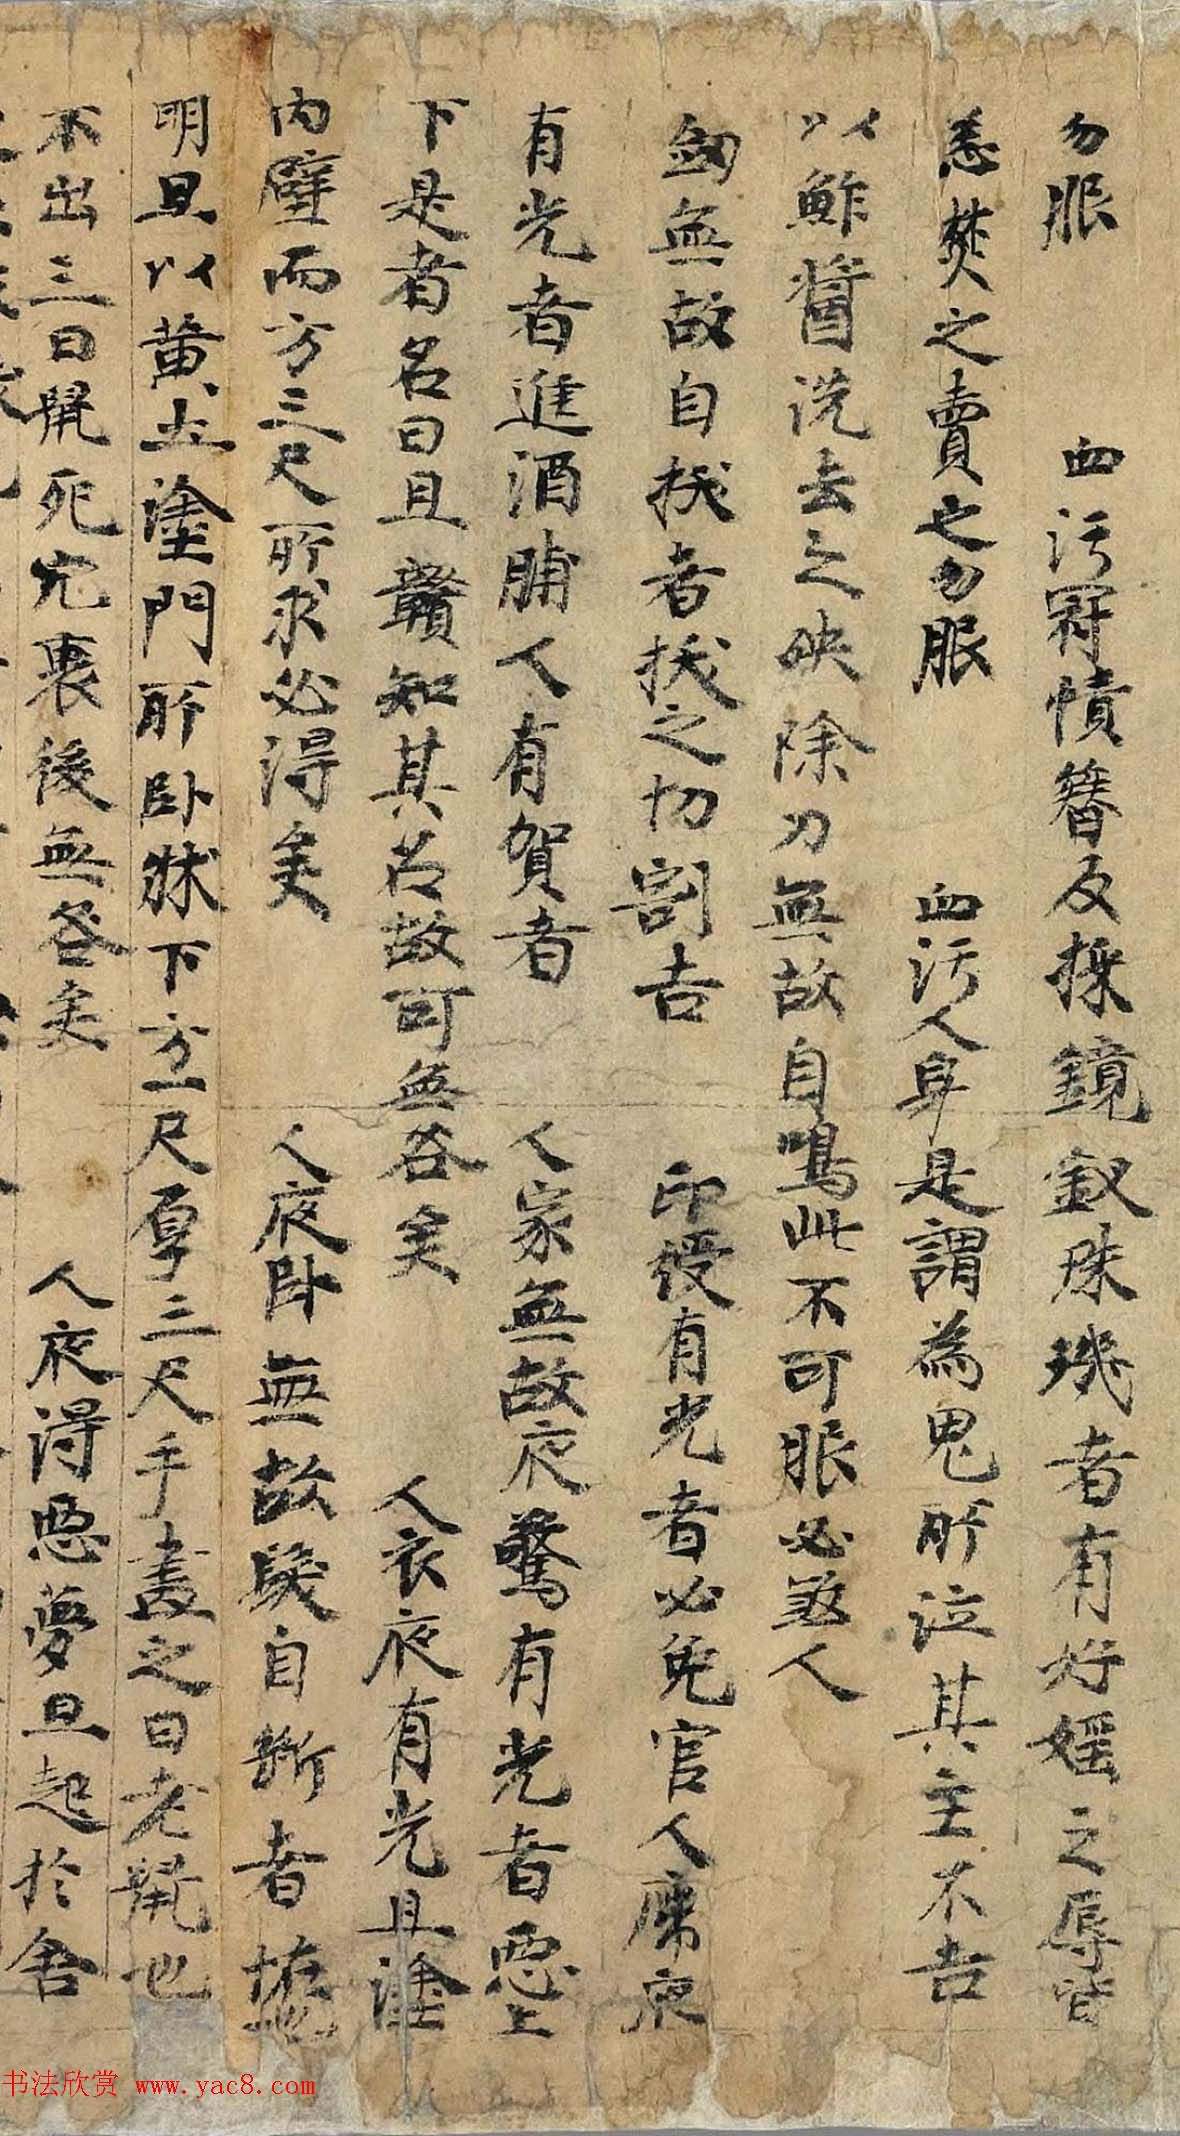 勿服 血污冠幘簪及採鏡釵珠璣者有好婬之辱皆
悉焚之賣之勿服 血污人身是謂為鬼所泣其主不吉
以鮓醬洗去之殃除刀無故自鳴此不可服必煞人
劔無故自拔者拔之切割吉 印綬有光者必免官人席夜
有光者進酒脯人有賀者 人家無故夜驚有光者惡上
下是者名曰且贛知其名故可無咎矣 人衣夜有光且塗
內壁而方三尺所求必得矣 人夜卧無故髮自斷者
明旦以黃土塗門所卧牀下方一尺厚三尺手畫之曰老鼠也
不出三日鼠死穴裏後無咎矣 人夜得惡夢旦起於舍
书法欣赏 www.yac8.com